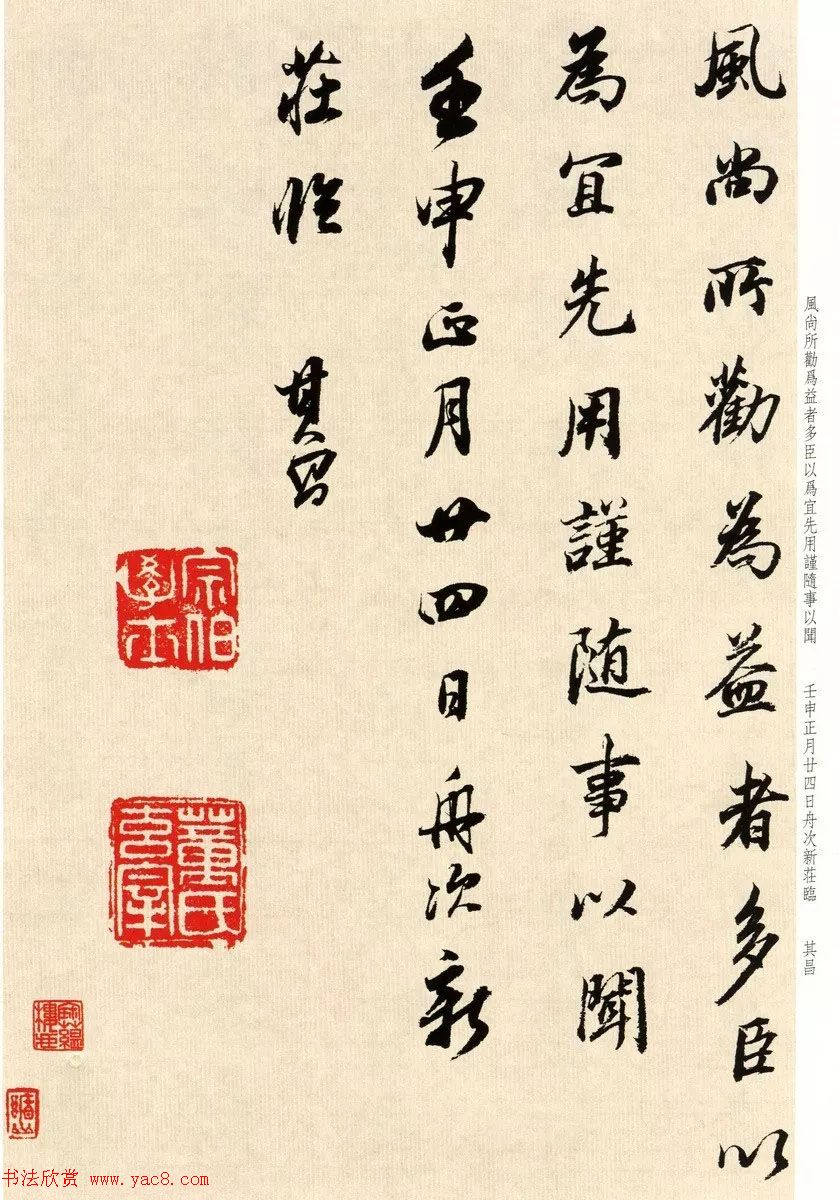 風尚所勸為益者多臣以
為宜先用謹随事以聞
壬申正月廿四日舟次新
莊臨 其昌
宗伯學士
董氏玄宰
風尚所勸爲益者多臣以爲宜先用謹隨事以聞 壬申正月廿四日舟次新莊臨 其昌
书法欣赏 www.yac8.com